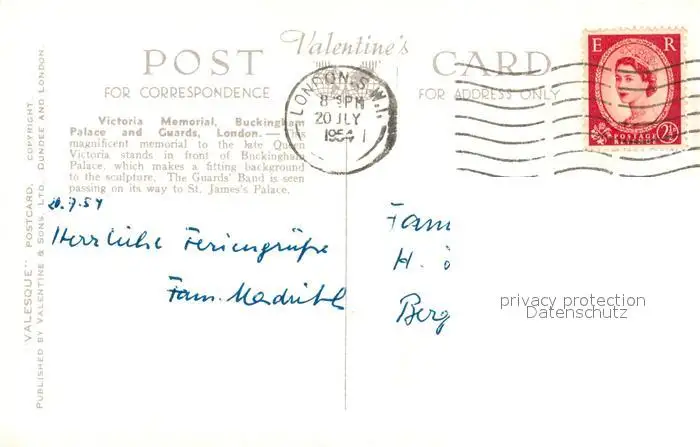 Valentine's
POST CARD
FOR CORRESPONDENCE
FOR ADDRESS ONLY
LONDON. S.W.1.
8-PM
20 JLY
1954
E R
POSTAGE
REVENUE
2½
Victoria Memorial, Buckingham
Palace and Guards, London.—
magnificent memorial to the late Queen
Victoria stands in front of Buckingham
Palace, which makes a fitting background
to the sculpture. The Guards' Band is seen
passing on its way to St. James's Palace.
"VALESQUE" POSTCARD. COPYRIGHT.
PUBLISHED BY VALENTINE & SONS, LTD. DUNDEE AND LONDON.
20.7.54
Herrliche Feriengrüße
Fam.
Fam
H.
Berg
privacy protection
Datenschutz